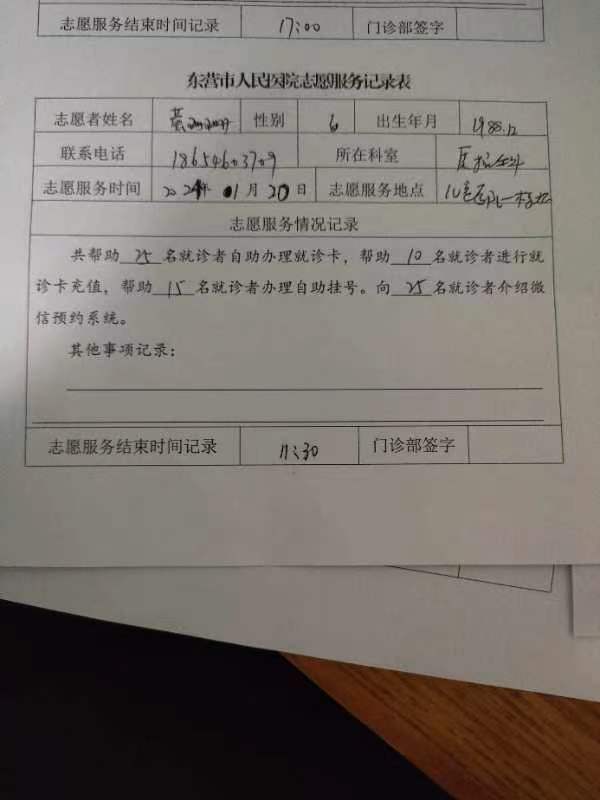 志愿服务结束时间记录 17:00 门诊部签字
东营市人民医院志愿服务记录表
志愿者姓名 性别 出生年月 1988.12
联系电话 18654603709 所在科室
志愿服务时间 2021年 01月 20日 志愿服务地点
志愿服务情况记录
共帮助 25 名就诊者自助办理就诊卡，帮助 10 名就诊者进行就
诊卡充值，帮助 15 名就诊者办理自助挂号。向 25 名就诊者介绍微
信预约系统。
其他事项记录：
志愿服务结束时间记录 11:30 门诊部签字